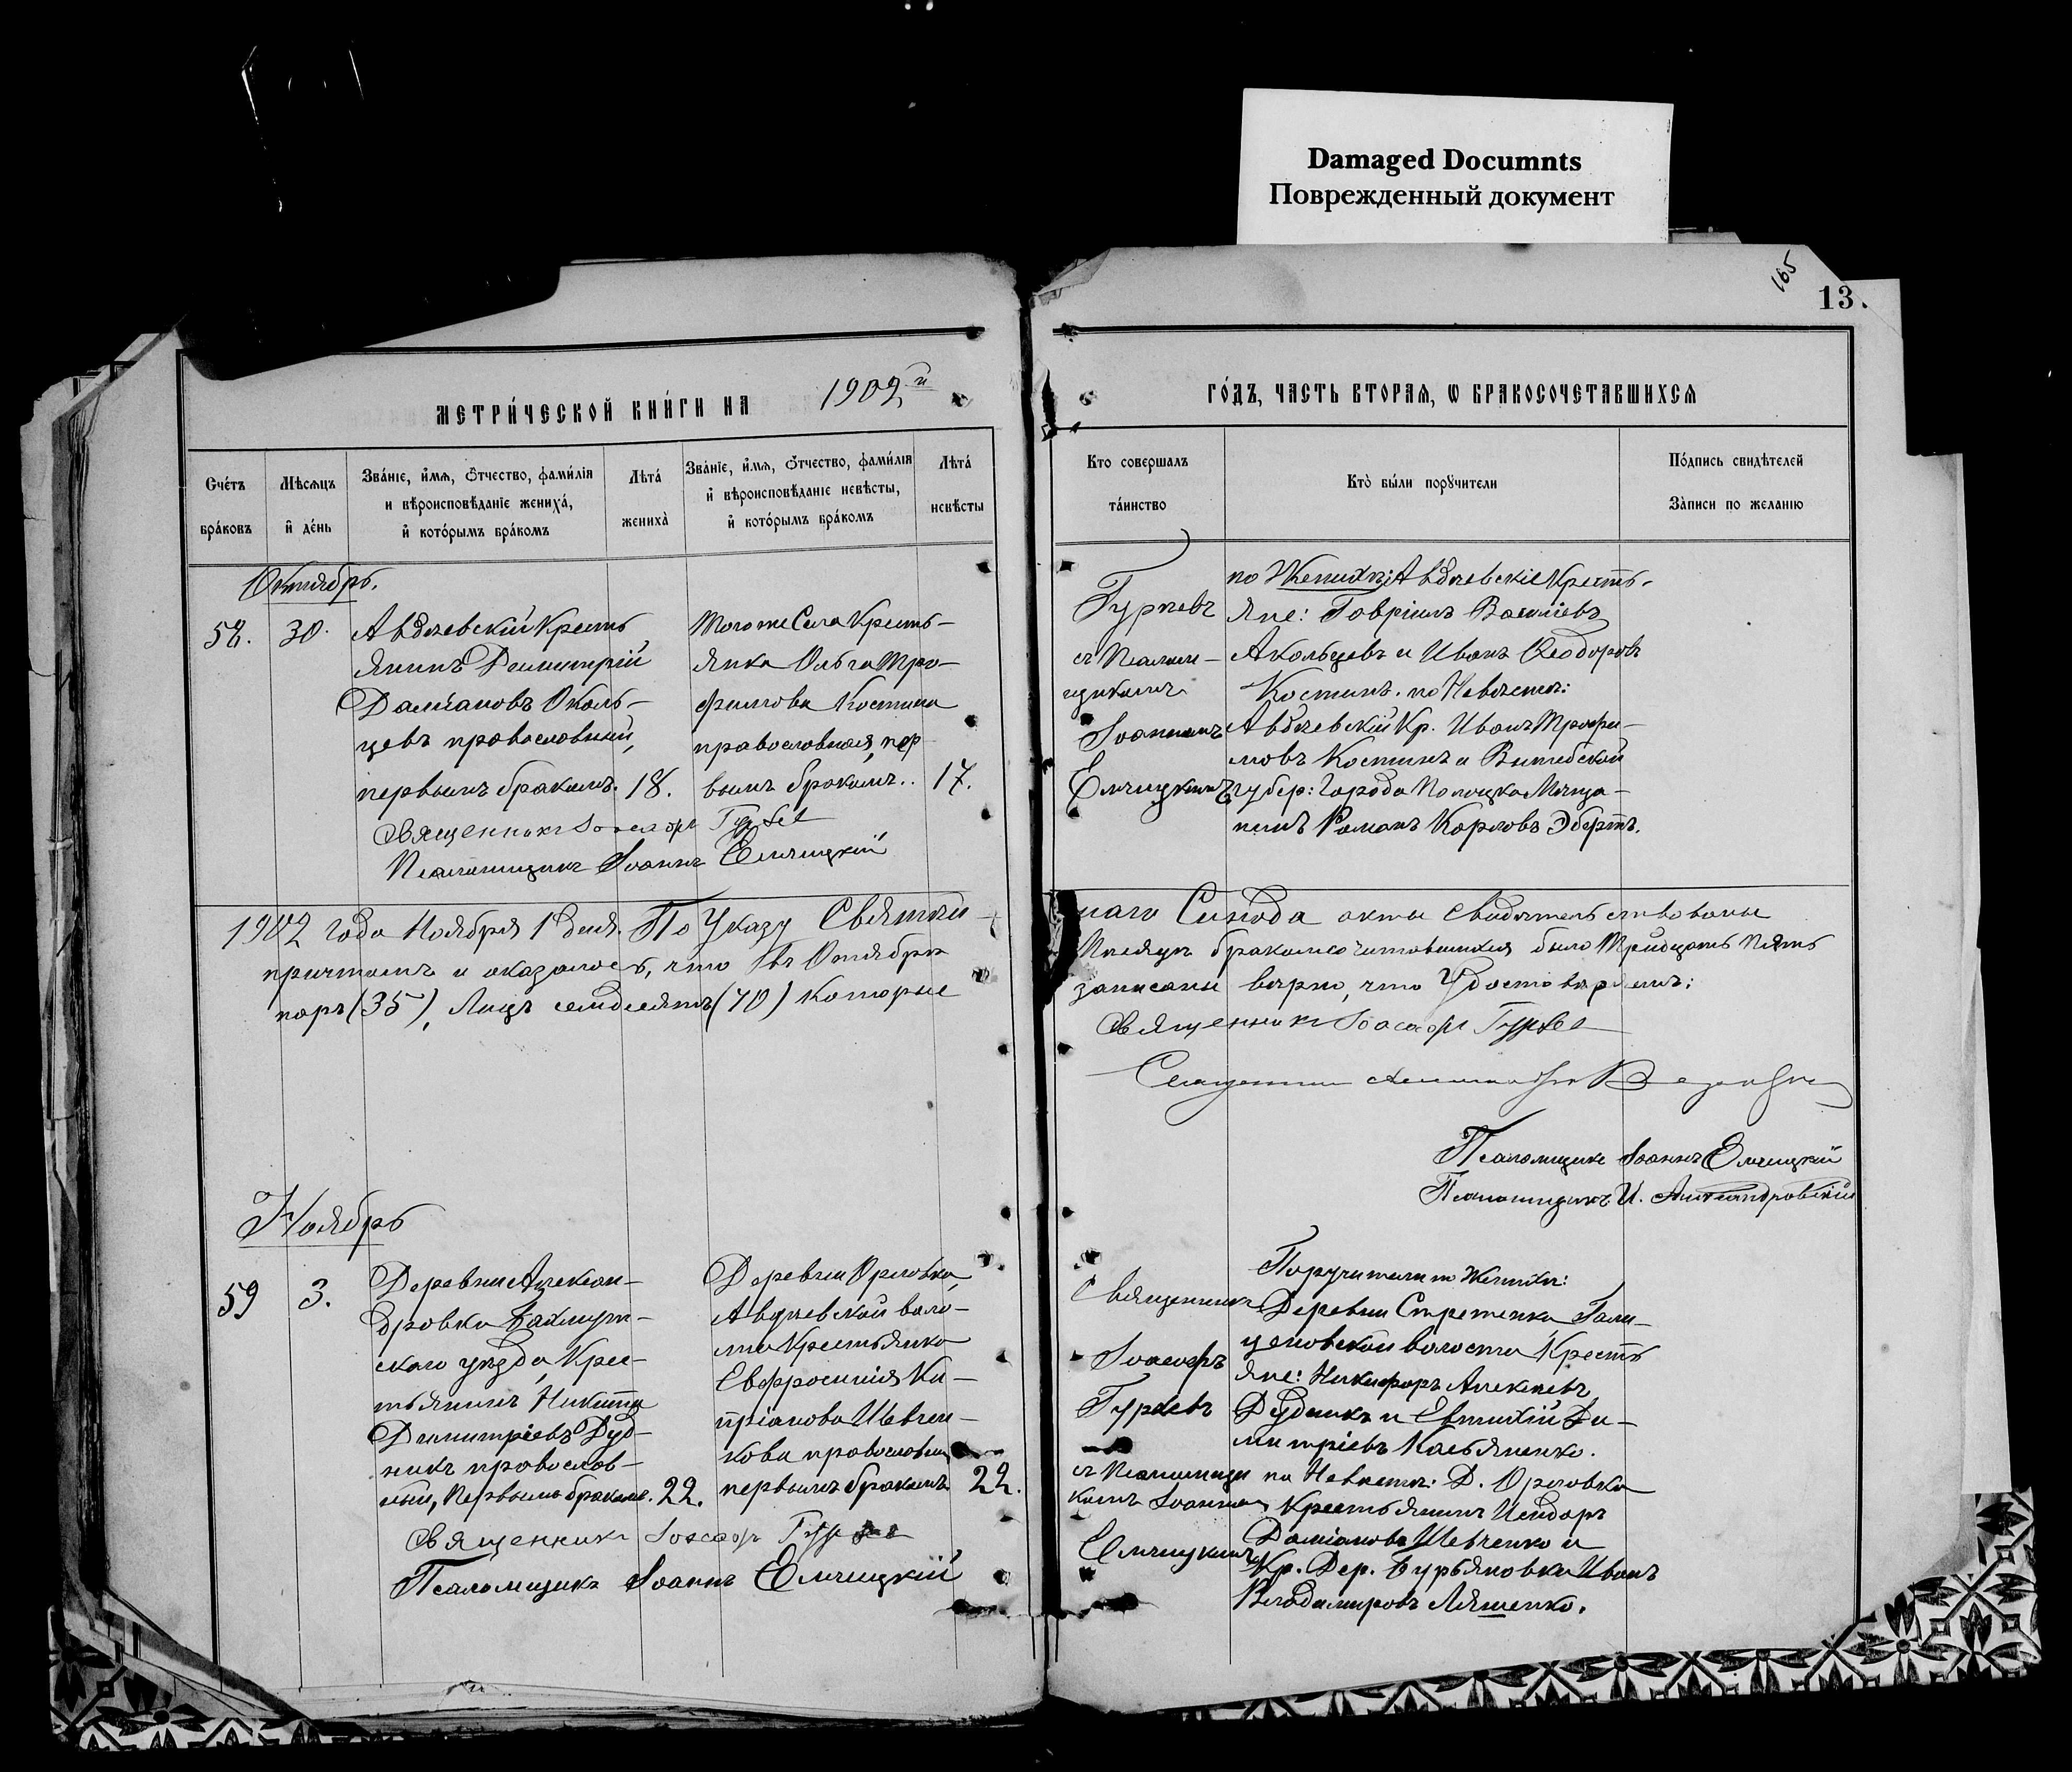 Damaged Documnts
Поврежденный документ
165
13.
МЕТРИ́ЧЕСКОЙ КНИ́ГИ НА 1902й
ГО́ДЪ, ЧАСТЬ ВТОРАЯ, Ѡ БРАКОСОЧЕТАВШИХСЯ
Сче́тъ бра́ковъ
Мѣсяцъ и҆ де́нь
Зва́нїе, и҆́мя, Ѻтчество, фами́лїя
и вѣроисповѣданїе жениха́,
и҆ кото́рымъ бра́комъ
Лѣта́ жениха̀
Зва́нїе, и҆́мя, Ѻтчество, фами́лїя
и҆ вѣроисповѣданїе невѣсты,
и҆ кото́рымъ бра́комъ
Лѣта́ невѣсты
Кто совершалъ та́инство
Кто̀ бы́ли порꙋчители
По́дпись свидѣтелей
За̀писи по желанїю
Октябрь.
58.
30.
Авдѣевскій Кресть
янинъ Димитрій
Даміановъ Околь-
цевъ православный,
первымъ бракомъ.
18.
Того же Села Кресть-
янка Ольга Тро-
фимова Костина
православная, пер
вымъ бракомъ..
17.
Священникъ Іоасафъ Гурьев
Псаломщикъ Іоаннъ Елчицкій
Гурьевъ
съ Псалом-
щикомъ
Іоанномъ
Елчицкимъ
по Женихѣ: Авдѣевскіе Кресть-
яне: Гавріилъ Василіевъ
Акольцевъ и Иванъ Ѳеодоровъ
Костинъ. по Невѣстѣ:
Авдѣевскій Кр. Иванъ Трофи-
мовъ Костинъ и Витебской
губер: города Полоцка Мѣща-
нинъ Романъ Карловъ Эбертъ.
1902 года Ноября 1 дня. По Указу Святѣй
шаго Синода акты свидѣтельствованы
причтомъ и оказалось, что въ Октябрѣ
Мѣсяцѣ бракосочетавшихся было тридцать пять
паръ (35), Лицъ семдесятъ (70) которые
записаны вѣрно, что удостовѣряемъ:
Священникъ Іоасафъ Гурьев
Священникъ
Псаломщикъ Іоаннъ Елчицкій
Псаломщикъ И.
Ноябрь
59
3.
Деревни Алексан-
дровки Бахмут-
скаго уѣзда, Крес-
тьянинъ Никита
Димитріевъ Дуд-
никъ православ-
ный, Первымъ бракомъ.
22.
Деревни Орловки,
Авдѣевской воло-
сти Крестьянка
Евфросинія Ки-
пріанова Шевчен-
кова православная
первымъ бракомъ
22.
Священникъ Іоасафъ Гурьев
Псаломщикъ Іоаннъ Елчицкій
Священникъ
Іоасафъ
Гурьевъ
съ Псаломщи
комъ Іоанномъ
Елчицкимъ
Поручители по Женихѣ:
Деревни Стретенка Гали-
циновской волости Кресть
яне: Никифоръ Алексѣевъ
Дудникъ и Евтихій Ди-
митріевъ Касьяненко.
по Невѣстѣ: Д. Орловка
Крестьянинъ Исидоръ
Даміановъ Шевченко и
Кр. Дер. Бурьяновки Иванъ
Владимировъ Ляшенко.